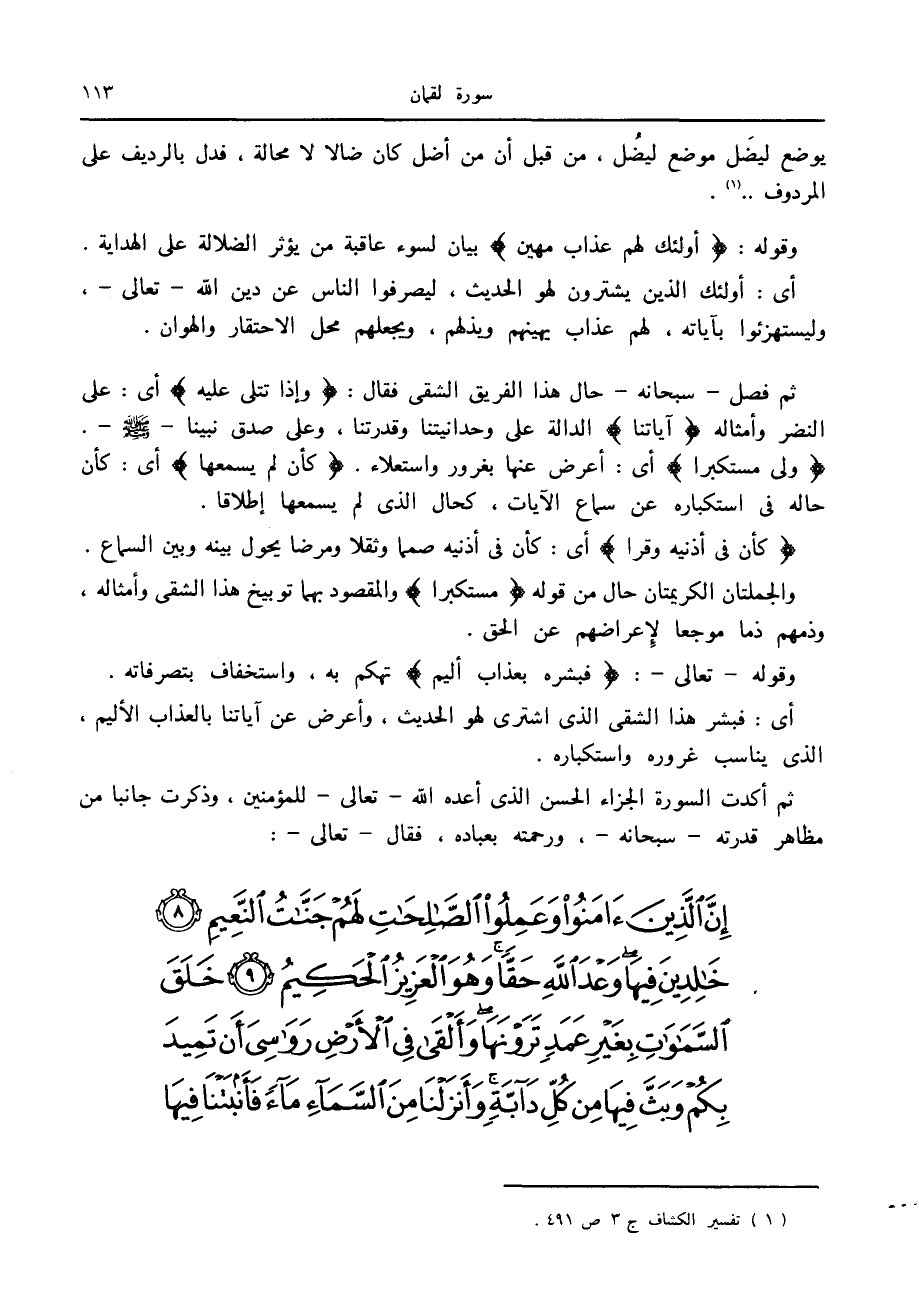 سورة لقمان ١١٣
يوضع ليضَل موضع ليضُل ، من قبل أن من أضل كان ضالا لا محالة ، فدل بالرديف على
المردوف ..(١) .
وقوله : ﴿ أولئك لهم عذاب مهين ﴾ بيان لسوء عاقبة من يؤثر الضلالة على الهداية .
أى : أولئك الذين يشترون لهو الحديث ، ليصرفوا الناس عن دين الله – تعالى – ،
وليستهزئوا بآياته ، لهم عذاب يهينهم ويذلهم ، ويجعلهم محل الاحتقار والهوان .
ثم فصل – سبحانه – حال هذا الفريق الشقى فقال : ﴿ وإذا تتلى عليه ﴾ أى : على
النضر وأمثاله ﴿ آياتنا ﴾ الدالة على وحدانيتنا وقدرتنا ، وعلى صدق نبينا – ﷺ – .
﴿ ولى مستكبرا ﴾ أى : أعرض عنها بغرور واستعلاء . ﴿ كأن لم يسمعها ﴾ أى : كأن
حاله فى استكباره عن سماع الآيات ، كحال الذى لم يسمعها إطلاقا .
﴿ كأن فى أذنيه وقرا ﴾ أى : كأن فى أذنيه صمما وثقلا ومرضا يحول بينه وبين السماع .
والجملتان الكريمتان حال من قوله ﴿ مستكبرا ﴾ والمقصود بهما توبيخ هذا الشقى وأمثاله ،
وذمهم ذما موجعا لإعراضهم عن الحق .
وقوله – تعالى – : ﴿ فبشره بعذاب أليم ﴾ تهكم به ، واستخفاف بتصرفاته .
أى : فبشر هذا الشقى الذى اشترى لهو الحديث ، وأعرض عن آياتنا بالعذاب الأليم ،
الذى يناسب غروره واستكباره .
ثم أكدت السورة الجزاء الحسن الذى أعده الله – تعالى – للمؤمنين ، وذكرت جانبا من
مظاهر قدرته – سبحانه – ، ورحمته بعباده ، فقال – تعالى – :
إِنَّ ٱلَّذِينَ ءَامَنُوا۟ وَعَمِلُوا۟ ٱلصَّـٰلِحَـٰتِ لَهُمْ جَنَّـٰتُ ٱلنَّعِيمِ ٨
خَـٰلِدِينَ فِيهَا ۖ وَعْدَ ٱللَّهِ حَقًّا ۚ وَهُوَ ٱلْعَزِيزُ ٱلْحَكِيمُ ٩ خَلَقَ
ٱلسَّمَـٰوَٰتِ بِغَيْرِ عَمَدٍ تَرَوْنَهَا ۖ وَأَلْقَىٰ فِى ٱلْأَرْضِ رَوَٰسِىَ أَن تَمِيدَ
بِكُمْ وَبَثَّ فِيهَا مِن كُلِّ دَآبَّةٍ ۚ وَأَنزَلْنَا مِنَ ٱلسَّمَآءِ مَآءً فَأَنۢبَتْنَا فِيهَا
( ١ ) تفسير الكشاف ج ٣ ص ٤٩١ .